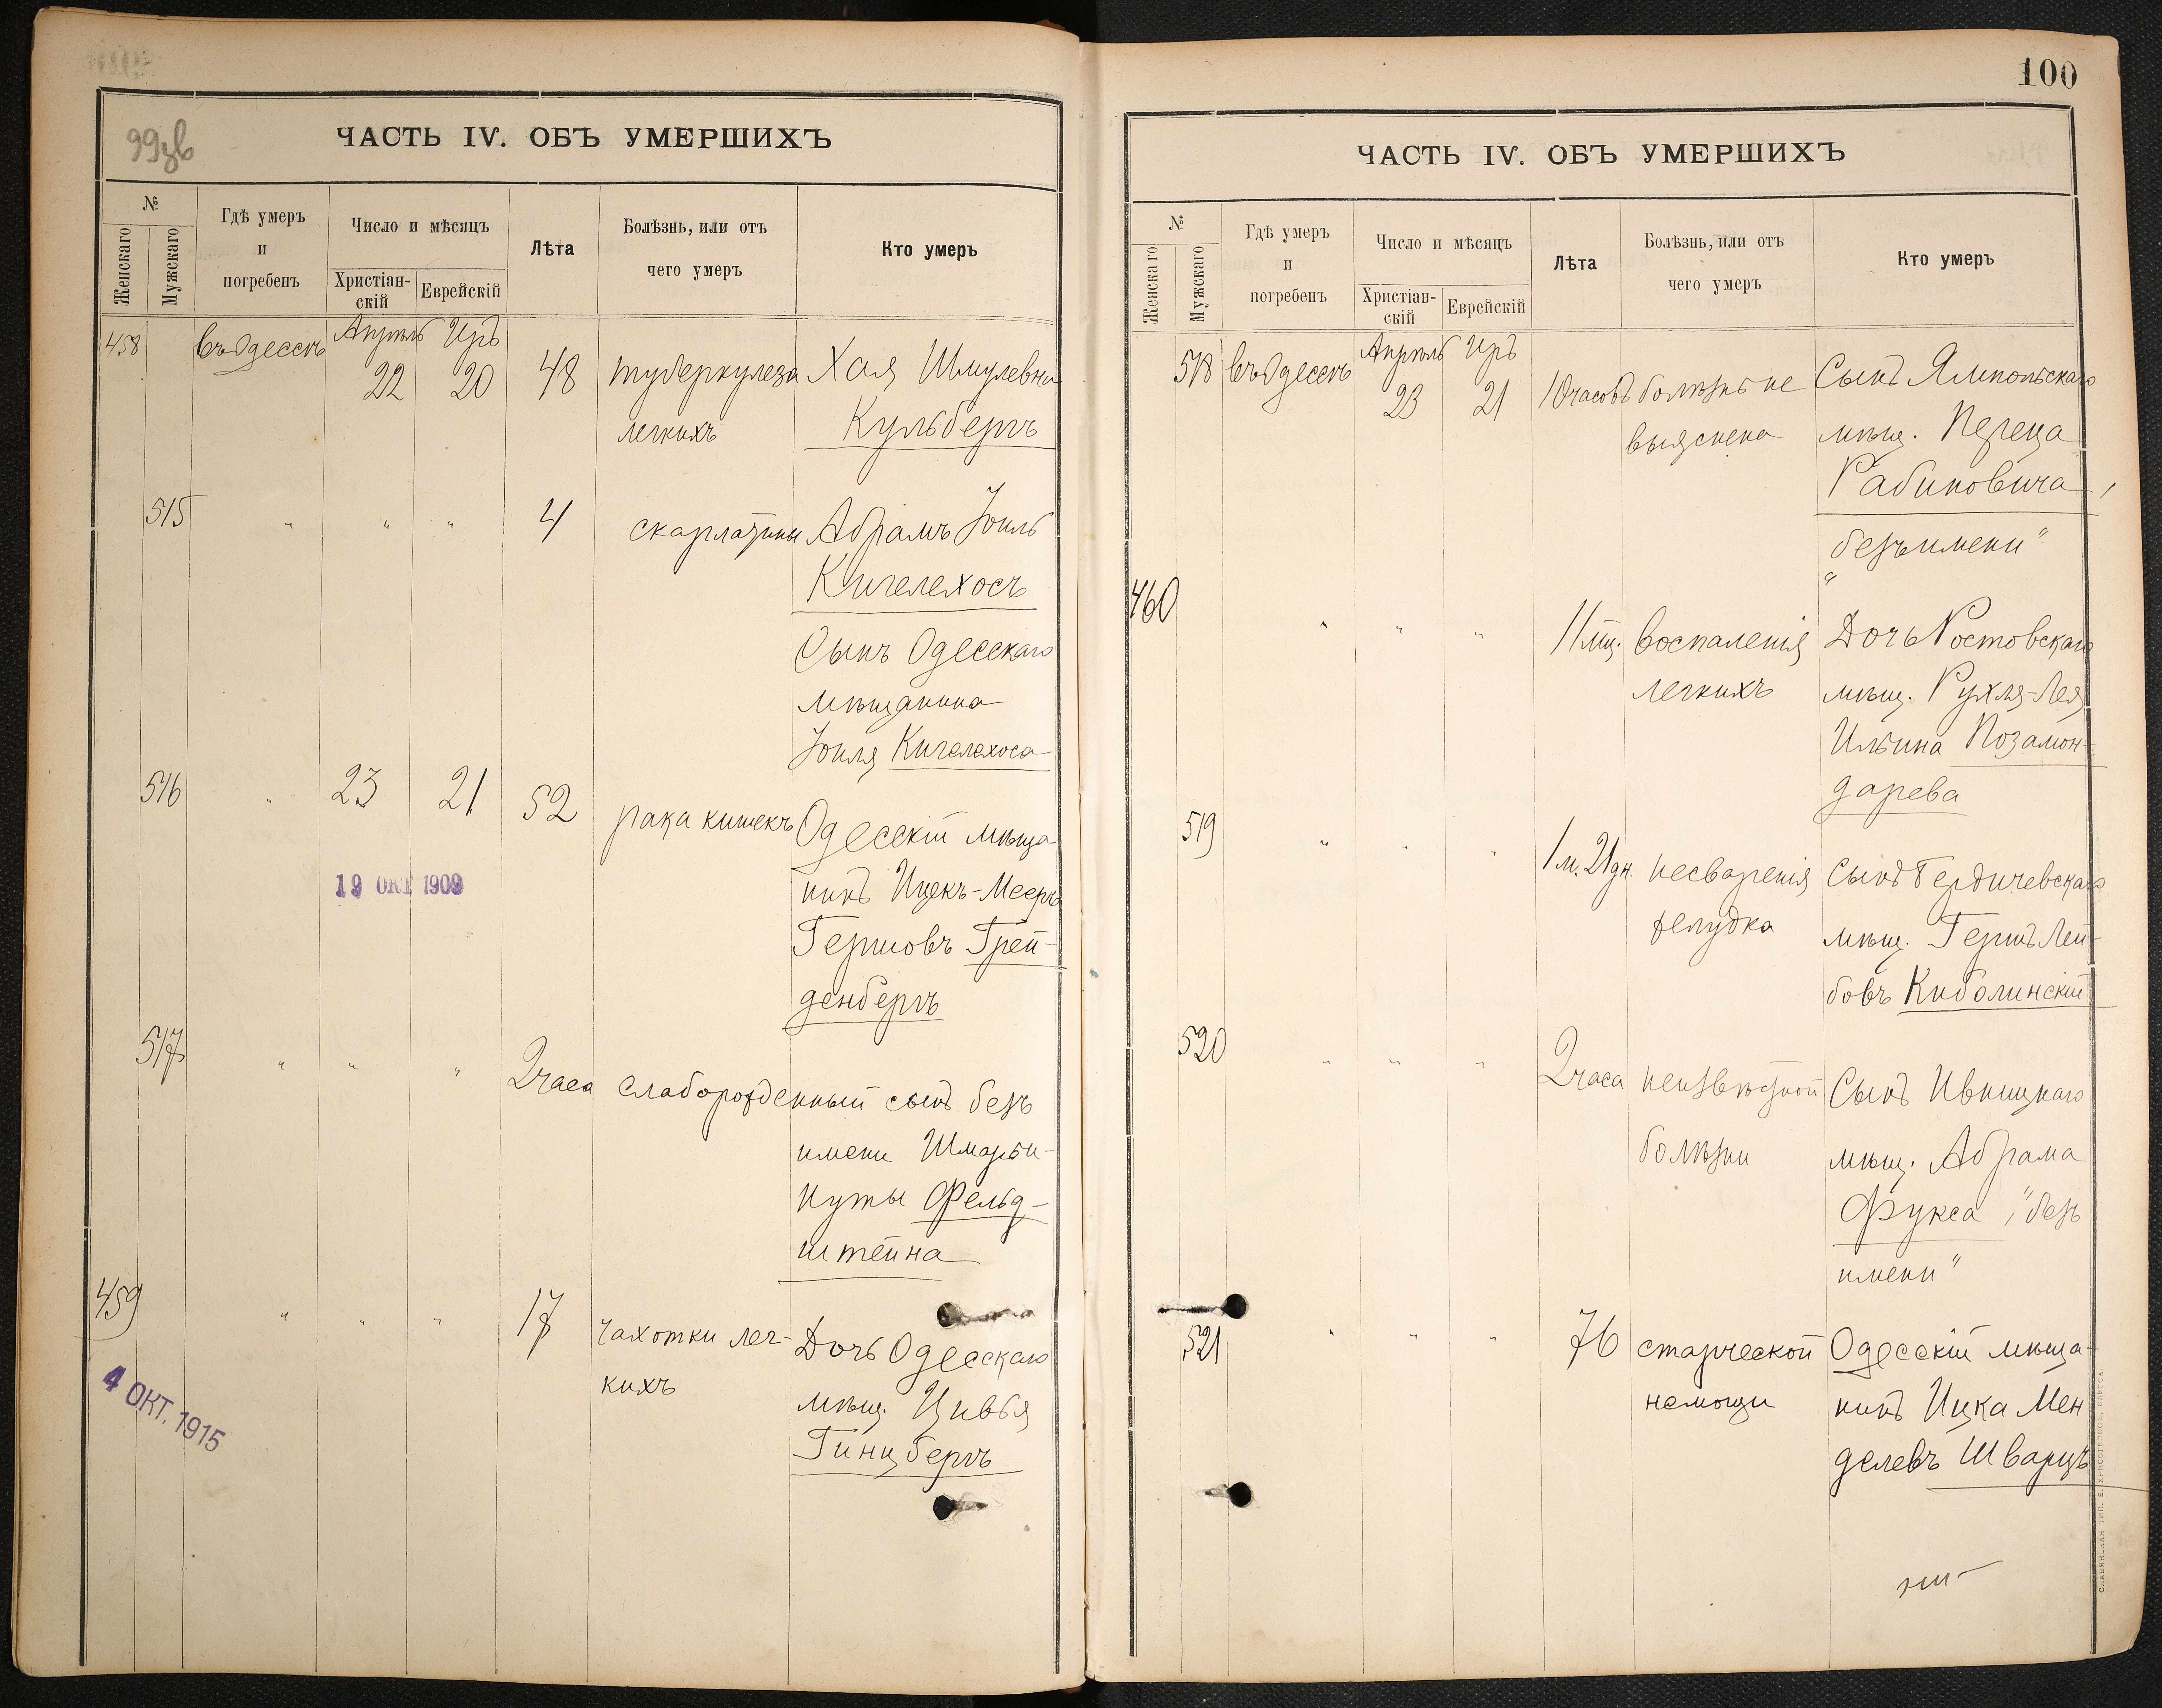 99зв
ЧАСТЬ IV. ОБЪ УМЕРШИХЪ
№
Женскаго
Мужскаго
Гдѣ умеръ
и
погребенъ
Число и мѣсяцъ
Христіан-
скій
Еврейскій
Лѣта
Болѣзнь, или отъ
чего умеръ
Кто умеръ
458 въ Одессѣ Апрѣль 22 Иръ 20 48 туберкулеза Хая Шмулевна
легкихъ Кульбергъ
515 " " " 4 скарлатины Абрамъ Іоиль
Кигелехосъ
Сынъ Одесскаго
мѣщанина
Іоиля Кигелехоса
516 " 23 21 52 рака кишекъ Одесскій мѣща-
19 ОКТ 1909
нинъ Ицекъ-Мееръ
Гершовъ Грей-
денбергъ
517 " " " 2 часа слаборожденный сынъ безъ
имени Шмарьи-
Нуты Фельд-
штейна
459 " " " 17 чахотки лег- Дочь Одесскаго
кихъ мѣщ. Цивья
4 ОКТ. 1915
Гинцбергъ
100
ЧАСТЬ IV. ОБЪ УМЕРШИХЪ
№
Женскаго
Мужскаго
Гдѣ умеръ
и
погребенъ
Число и мѣсяцъ
Христіан-
скій
Еврейскій
Лѣта
Болѣзнь, или отъ
чего умеръ
Кто умеръ
518 въ Одессѣ Апрѣль 23 Иръ 21 10 часовъ болѣзнь не Сынъ Ямпольскаго
выяснена мѣщ. Переца
Рабиновича,
"безъ имени"
460 " " " 11 мц. воспаленія Дочь Ростовскаго
легкихъ мѣщ. Рухля-Лея
Ильина Позамон-
дарева
519 " " " 1 м. 21 дн. несваренія Сынъ Бердичевскаго
желудка мѣщ. Гершъ Лей-
бовъ Киболинскій
520 " " " 2 часа неизвѣстной Сынъ Ивницкаго
болѣзни мѣщ. Абрама
Фукса, "безъ
имени"
521 " " " 76 старческой Одесскій мѣща-
немощи нинъ Ицка Мен
делевъ Шварцъ